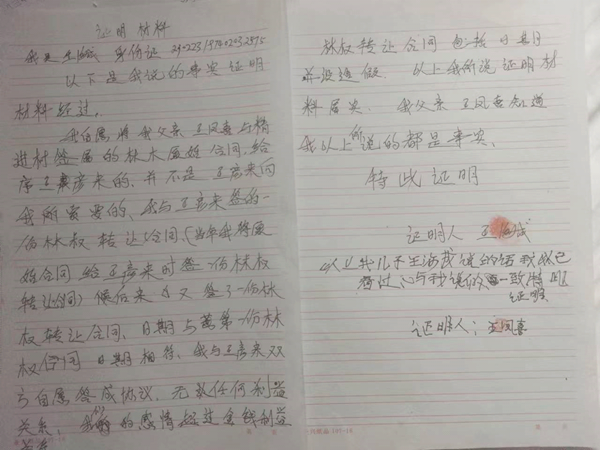 证明材料
我是王 身份证
以下是我说的事实证明
材料经过.
我自愿将我父亲王凤喜与精
进村签属的林木原始合同,给
序王彦来的.并不是王彦来向
我所要的,我与王彦来签的一
份林权转让合同,(当年我将原
始合同给王彦来时签一份林权
转让合同)候后来又签了一份林
权转让合同、日期与第一份林
权合同日期相符、我与王彦来双
方自愿签成协议、无效任何利益
关系、我们的感情超过金钱利益
关系
林权转让合同包括日期
并没造假. 以上我所说证明材
料属实、我父亲王凤喜知道
我以上所说的都是事实、
特此证明
证明人 王
以上我儿子王 说的话我
看过,与我说的一致特
证明
证明人:王凤喜